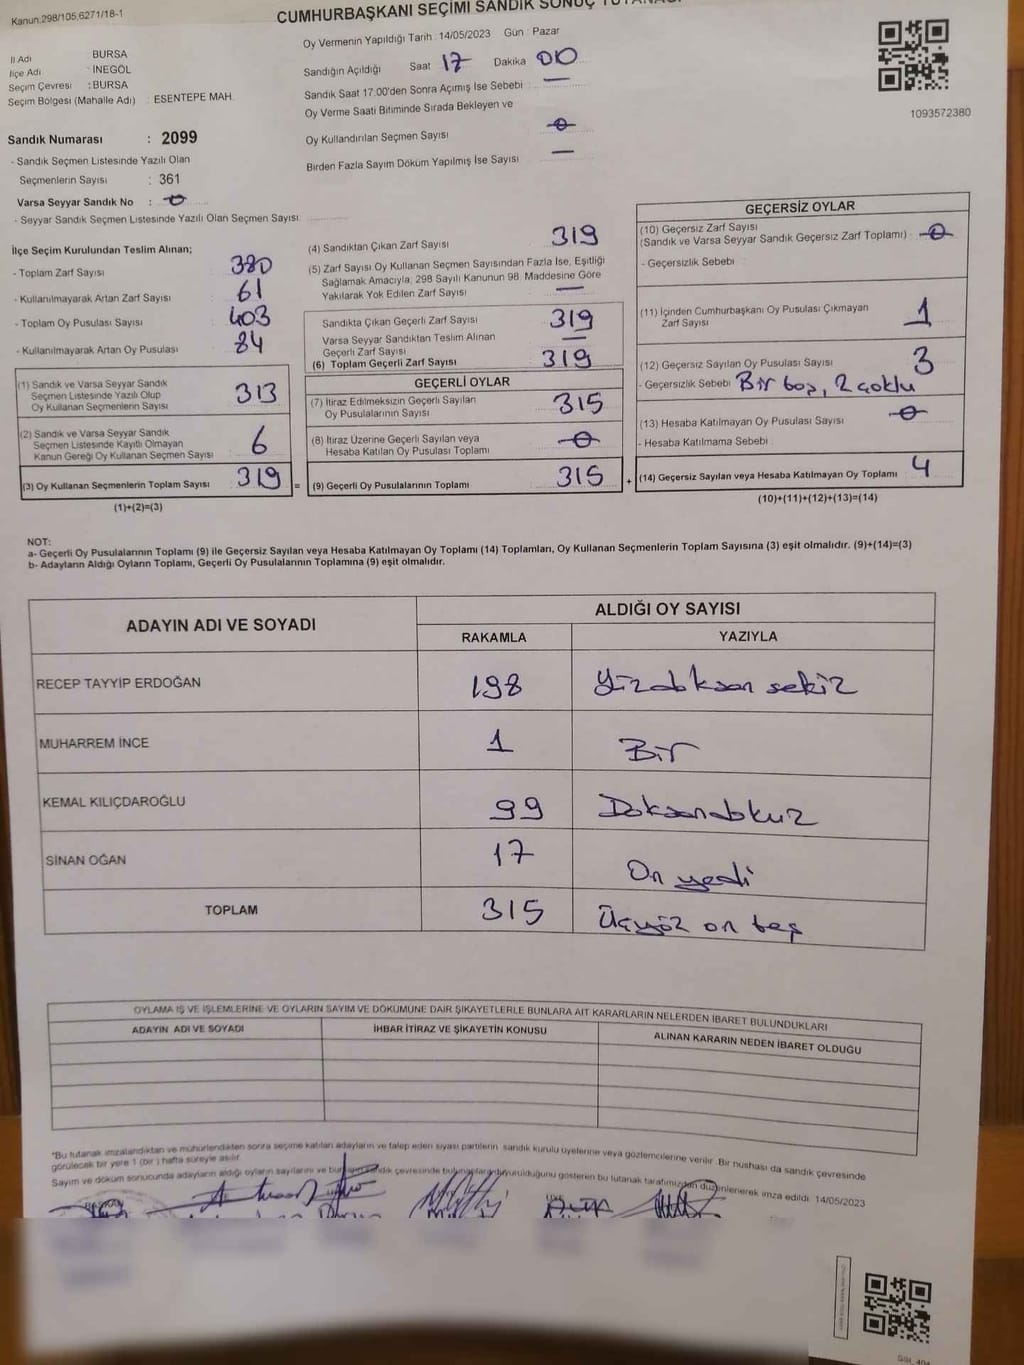 Kanun.298/105,6271/18-1
CUMHURBAŞKANI SEÇİMİ SANDIK SONUÇ TUTANAĞI
İl Adı BURSA
İlçe Adı İNEGÖL
Seçim Çevresi : BURSA
Seçim Bölgesi (Mahalle Adı) : ESENTEPE MAH.
Sandık Numarası : 2099
- Sandık Seçmen Listesinde Yazılı Olan
Seçmenlerin Sayısı : 361
Varsa Seyyar Sandık No : 0
- Seyyar Sandık Seçmen Listesinde Yazılı Olan Seçmen Sayısı:
Oy Vermenin Yapıldığı Tarih : 14/05/2023 Gün : Pazar
Sandığın Açıldığı Saat 17 Dakika 00
Sandık Saat 17:00'den Sonra Açımış İse Sebebi : —
Oy Verme Saati Bitiminde Sırada Bekleyen ve
Oy Kullandırılan Seçmen Sayısı 0
Birden Fazla Sayım Döküm Yapılmış İse Sayısı —
1093572380
İlçe Seçim Kurulundan Teslim Alınan;
- Toplam Zarf Sayısı 380
- Kullanılmayarak Artan Zarf Sayısı 61
- Toplam Oy Pusulası Sayısı 403
- Kullanılmayarak Artan Oy Pusulası 84
(1) Sandık ve Varsa Seyyar Sandık
Seçmen Listesinde Yazılı Olup
Oy Kullanan Seçmenlerin Sayısı 313
(2) Sandık ve Varsa Seyyar Sandık
Seçmen Listesinde Kayıtlı Olmayan
Kanun Gereği Oy Kullanan Seçmen Sayısı 6
(3) Oy Kullanan Seçmenlerin Toplam Sayısı 319 =
(1)+(2)=(3)
(4) Sandıktan Çıkan Zarf Sayısı 319
(5) Zarf Sayısı Oy Kullanan Seçmen Sayısından Fazla İse, Eşitliği
Sağlamak Amacıyla, 298 Sayılı Kanunun 98. Maddesine Göre
Yakılarak Yok Edilen Zarf Sayısı —
Sandıkta Çıkan Geçerli Zarf Sayısı 319
Varsa Seyyar Sandıktan Teslim Alınan
Geçerli Zarf Sayısı —
(6) Toplam Geçerli Zarf Sayısı 319
GEÇERLİ OYLAR
(7) İtiraz Edilmeksizin Geçerli Sayılan
Oy Pusulalarının Sayısı 315
(8) İtiraz Üzerine Geçerli Sayılan veya
Hesaba Katılan Oy Pusulası Toplamı 0
(9) Geçerli Oy Pusulalarının Toplamı 315 +
GEÇERSİZ OYLAR
(10) Geçersiz Zarf Sayısı
(Sandık ve Varsa Seyyar Sandık Geçersiz Zarf Toplamı) : 0
- Geçersizlik Sebebi :
(11) İçinden Cumhurbaşkanı Oy Pusulası Çıkmayan
Zarf Sayısı 1
(12) Geçersiz Sayılan Oy Pusulası Sayısı 3
- Geçersizlik Sebebi : Bir boş, 2 çoklu
(13) Hesaba Katılmayan Oy Pusulası Sayısı 0
- Hesaba Katılmama Sebebi :
(14) Geçersiz Sayılan veya Hesaba Katılmayan Oy Toplamı 4
(10)+(11)+(12)+(13)=(14)
NOT:
a- Geçerli Oy Pusulalarının Toplamı (9) ile Geçersiz Sayılan veya Hesaba Katılmayan Oy Toplamı (14) Toplamları, Oy Kullanan Seçmenlerin Toplam Sayısına (3) eşit olmalıdır. (9)+(14)=(3)
b- Adayların Aldığı Oyların Toplamı, Geçerli Oy Pusulalarının Toplamına (9) eşit olmalıdır.
ADAYIN ADI VE SOYADI ALDIĞI OY SAYISI
RAKAMLA YAZIYLA
RECEP TAYYİP ERDOĞAN 198 Yüzdoksan sekiz
MUHARREM İNCE 1 Bir
KEMAL KILIÇDAROĞLU 99 Doksandokuz
SİNAN OĞAN 17 On yedi
TOPLAM 315 Üçyüz on beş
OYLAMA İŞ VE İŞLEMLERİNE VE OYLARIN SAYIM VE DÖKÜMÜNE DAİR ŞİKAYETLERLE BUNLARA AİT KARARLARIN NELERDEN İBARET BULUNDUKLARI
ADAYIN ADI VE SOYADI İHBAR İTİRAZ VE ŞİKAYETİN KONUSU ALINAN KARARIN NEDEN İBARET OLDUĞU
*Bu tutanak imzalandıktan ve mühürlendikten sonra seçime katılan adayların ve talep eden siyasi partilerin sandık kurulu üyelerine veya gözlemcilerine verilir. Bir nüshası da sandık çevresinde
görülecek bir yere 1 (bir) hafta süreyle asılır.
Sayım ve döküm sonucunda adayların aldığı oyların sayılarını ve sandık çevresinde duyurulduğunu gösteren bu tutanak tarafımızdan düzenlenerek imza edildi. 14/05/2023